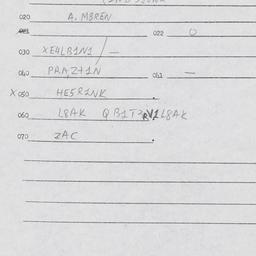 020 A. M8REN
021 022 0
030 XE4LB1N1 / —
040 PRAZ71N 041 —
X 050 HE5R1NK
060 L8AK QB1T
070 ZAC